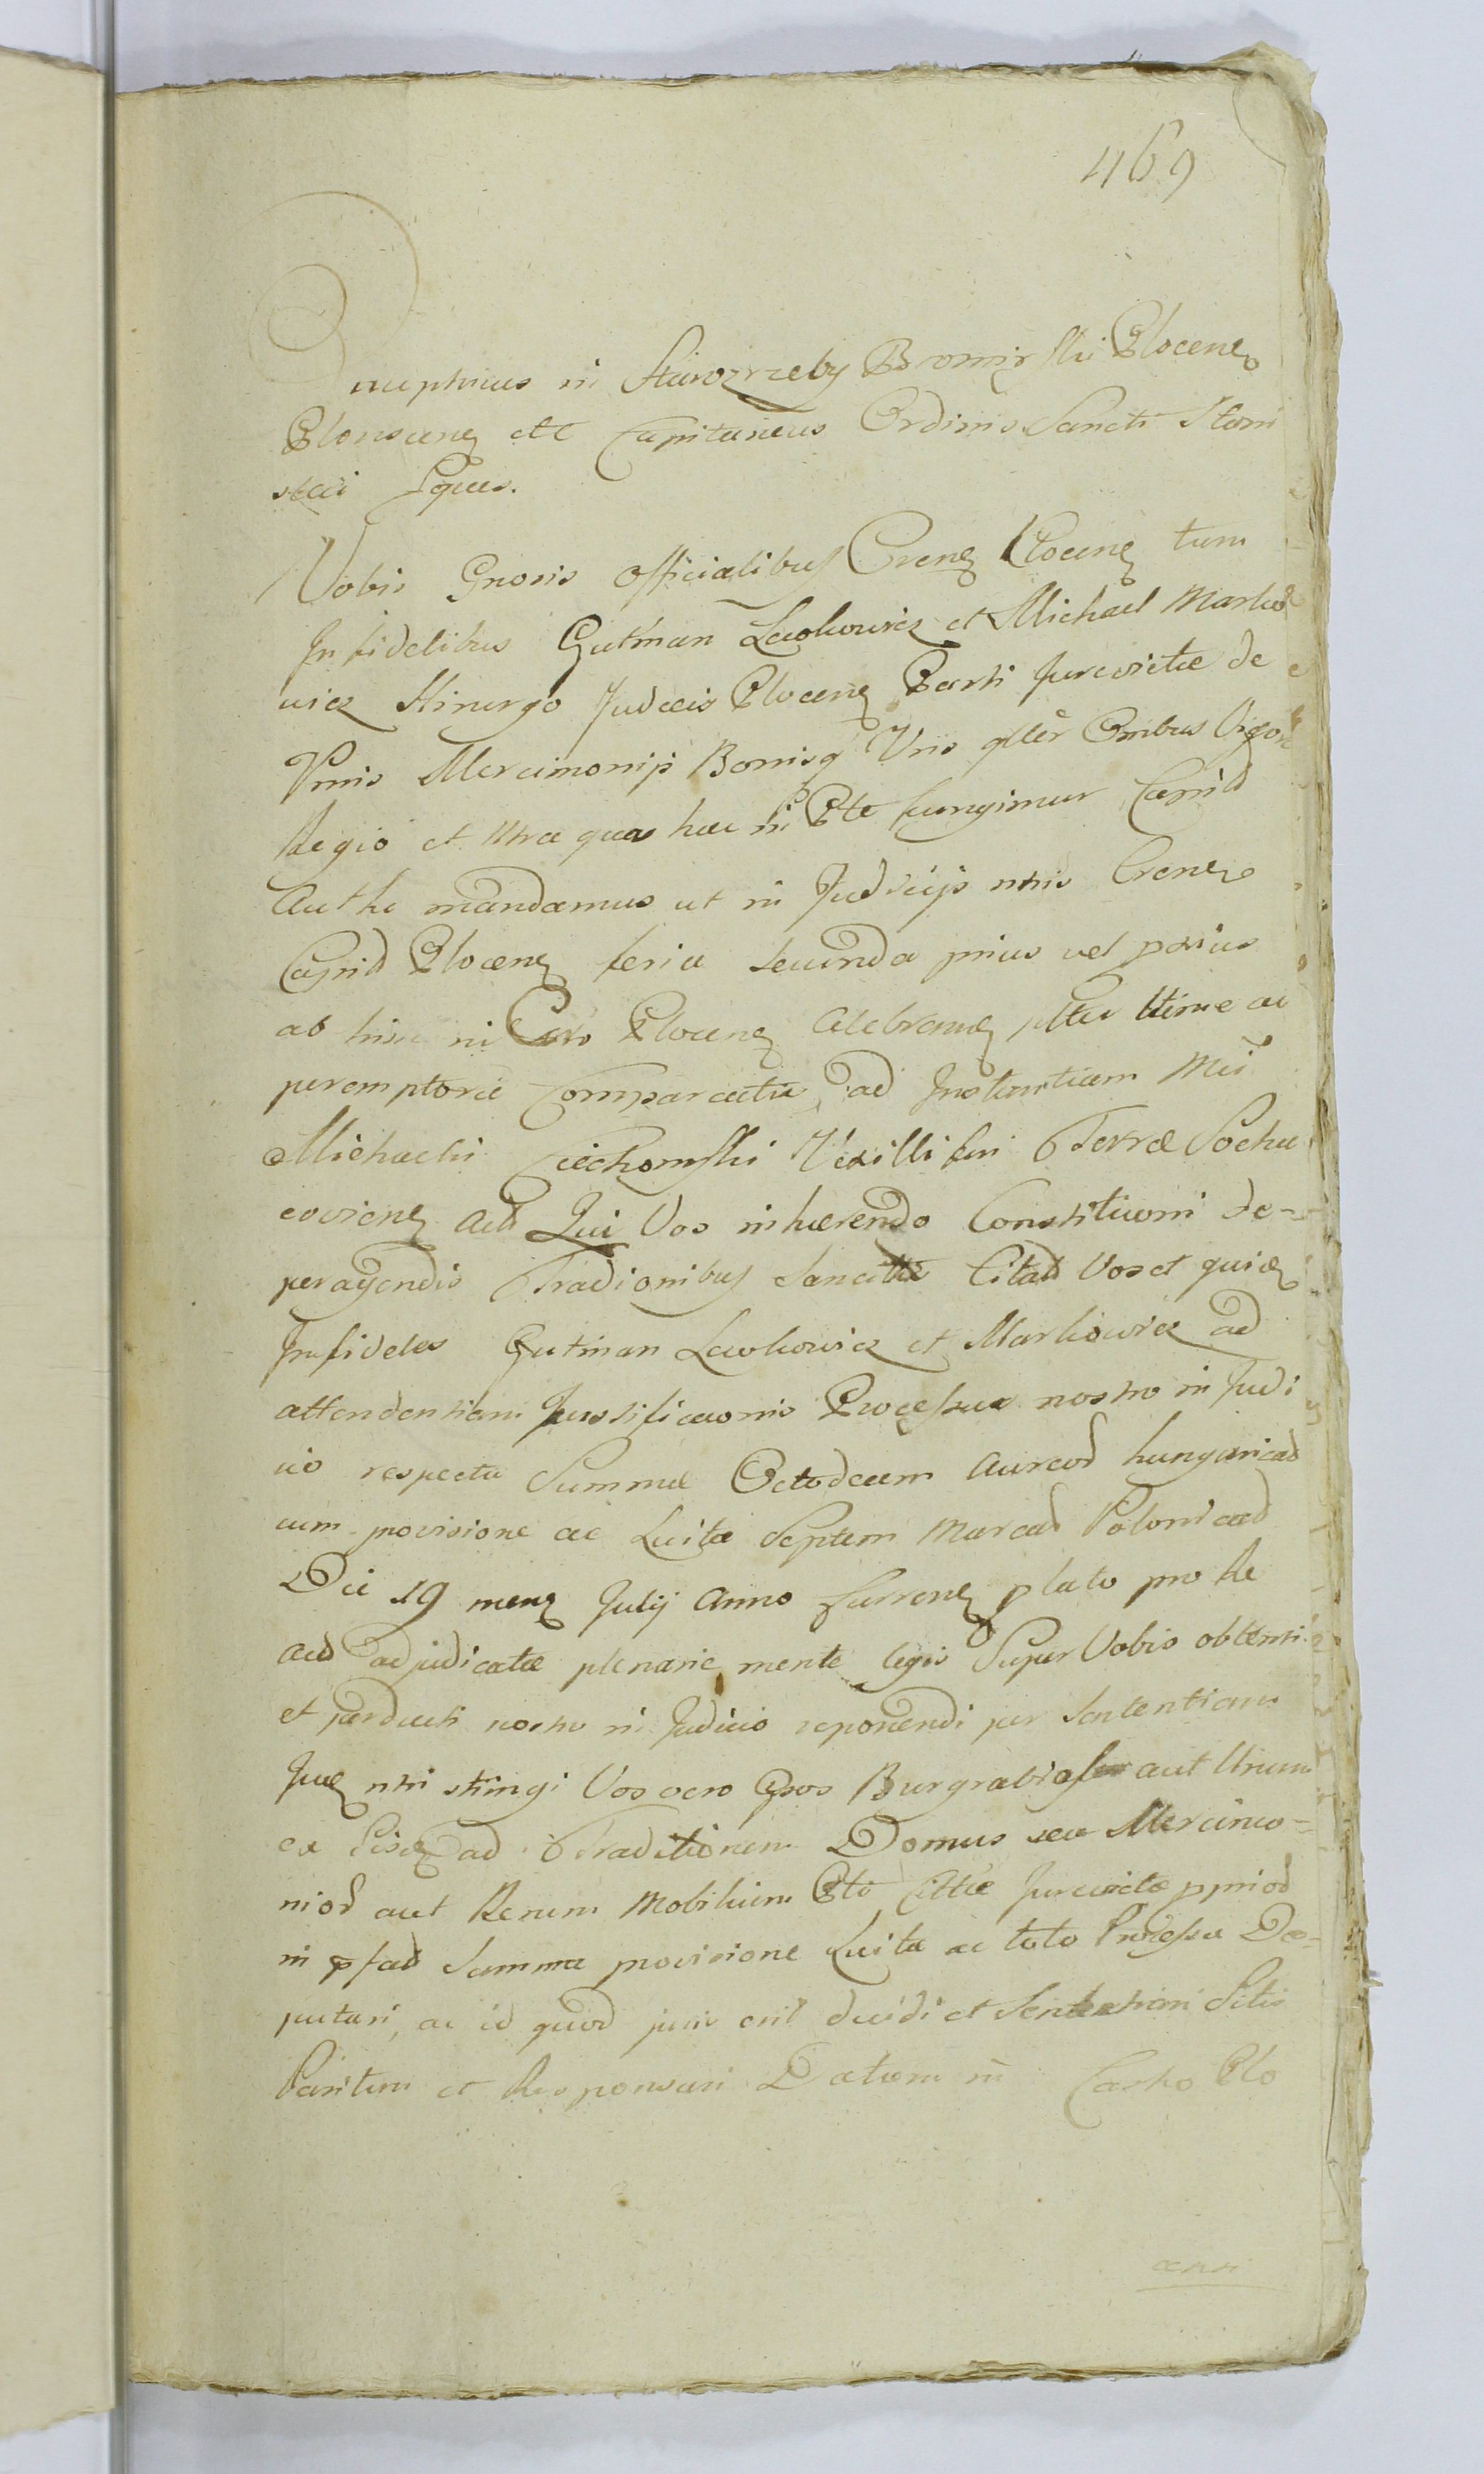 469
Onuphrius in Starozreby Bromirski Plocen
Plonscen etc Capitaneus Ordinis Sancti Stani
slai Eques.
Vobis Gnosis Officialibus Crens Plocens tum
Infidelibus Gutman Lewkowicz et Michael Marko
wicz Hirurgo Judeis Plocens Parti Jurevictæ de
Vrnis Mercimonijs Bonisq Vris gller Omibus Vigore
Regio et Nra qua hac in Pte fungimur Capnld
Authe mandamus ut in Judicijs nris Crens
Capnld Plocens feria secunda prius vel postius
ab hinc in Caro Plocens Celebrans ltime ac
peremptorie Comparcatis, ad Instantiam Mci
Michaelis Ciechomski Vexilliferi Terræ Socha
coviens Actt Qui Vos inhærendo Constituoni de-
peragendis Tradionibus Sancittæ Citatt Vos et quidem
Infideles Gutman Lewkowicz et Markowicz ad
attendentiam Justificaonis Processus nostro in Judi
cio respectu Summæ Octodecem Aureod hungaricad
cum provisione ac Luita Septem Marcad Polonicad
Die 19 mens Julij Anno Currens plato pro Re
Actt adjudicatæ plenarie mente legis Super Vobis obtenti
et perducti nostro in Judicio reponendi per Sententiam
Jud nri stringi Vos vero Gsos Burgrabios aut Unum
ex Eisd ad Traditionem Domus seu Mercimo=
niod aut Rerum Mobilium Pti Cittæ Jurevictæ ppriod
in pfad Summa provisione Luita ac toto Processu De=
putari, ac id quod juris erit decidi et Sententiari Sitis
Parituri et Responsuri Datum in Castro Plo
censi